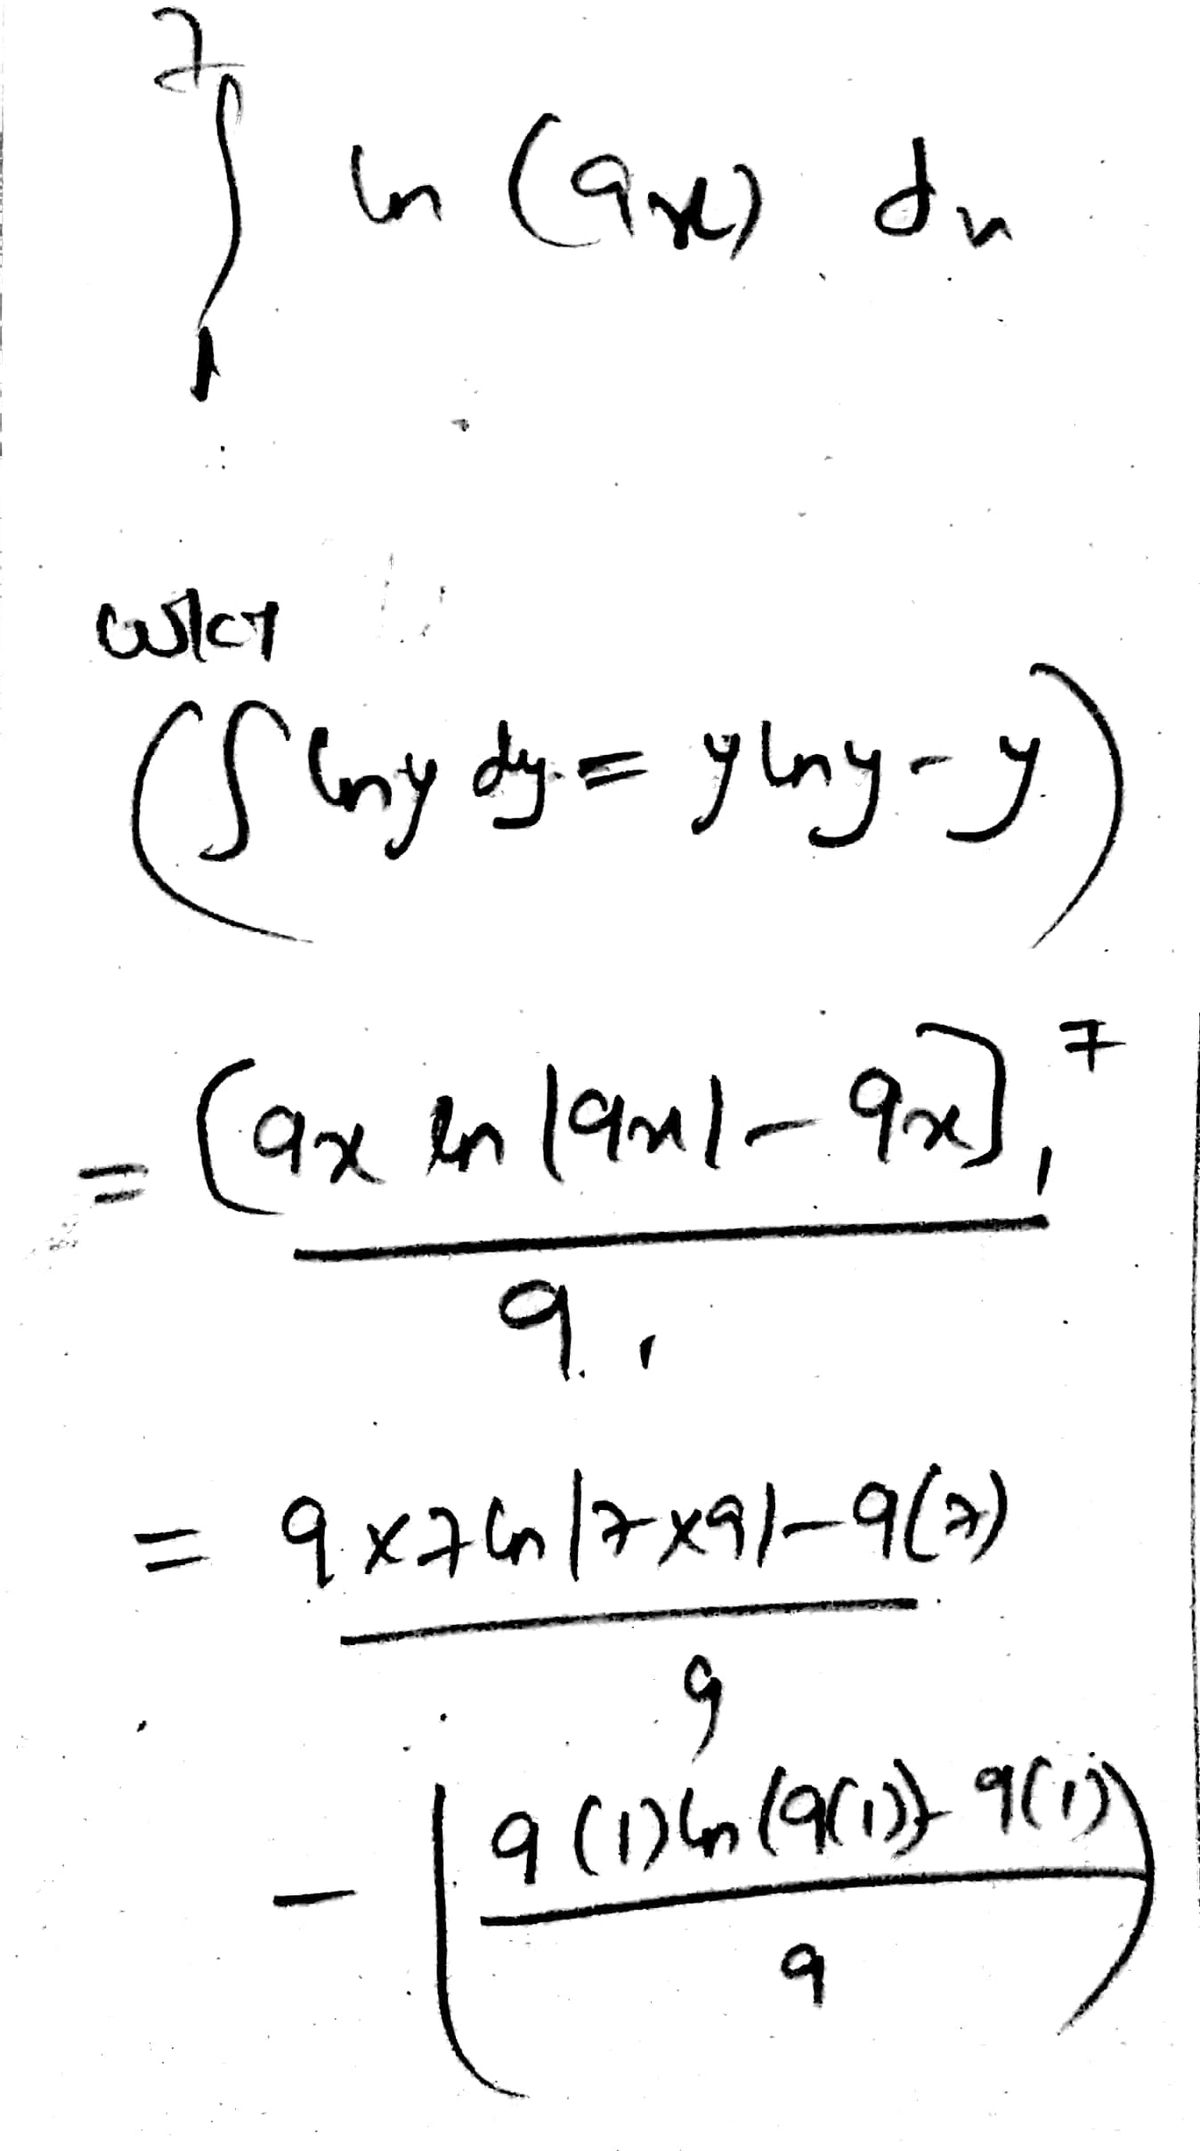 ∫₁⁷ ln (9x) dx
WKT
(∫ ln y dy = y ln y - y)
= [9x ln |9x| - 9x]₁⁷
9
= 9 × 7 ln |7 × 9| - 9(7)
9
- (9(1) ln (9(1)) - 9(1))
9